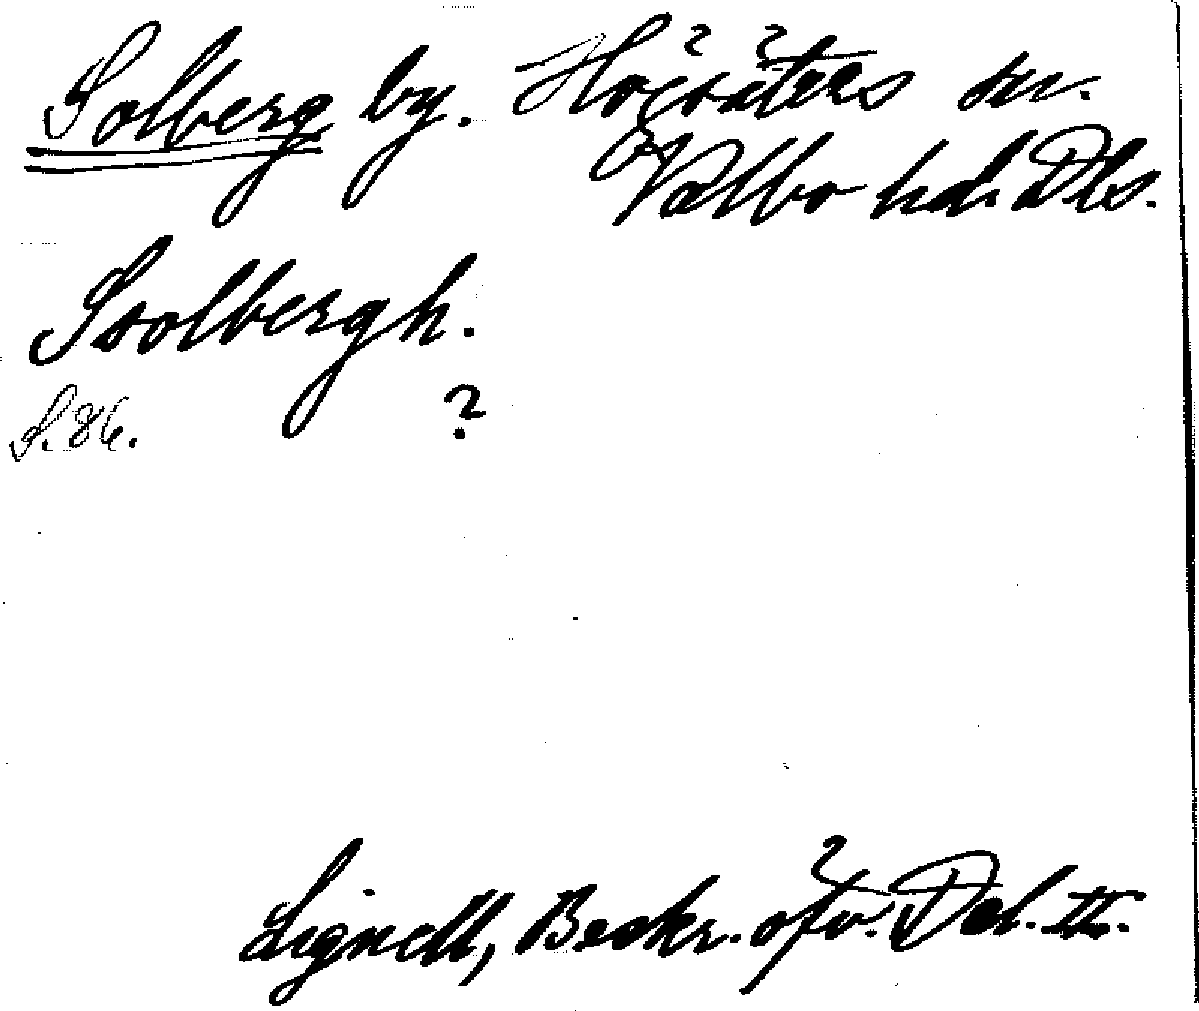 Solberg by. Högsäters sn.
Valbo hd. Dls.
Soolbergh.
S. 86. ?
Lignell, Beskr. öfv. Dal. II.